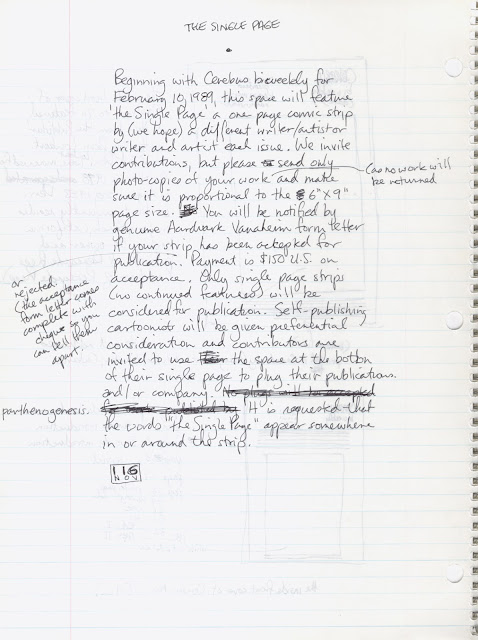 THE SINGLE PAGE
Beginning with Cerebus biweekly for
February 10, 1989, this space will feature
'the Single Page' a one page comic strip
by (we hope) a different writer/artist or
writer and artist each issue. We invite
contributions, but please send only
photo-copies of your work and make
(as no work will
be returned
sure it is proportional to the 6"X9"
page size. You will be notified by
genuine Aardvark Vanaheim form letter
if your strip has been accepted for
or
rejected.
(the acceptance
form letter comes
complete with
cheque so you
can tell them
apart.
publication. Payment is $150 U.S. on
acceptance. Only single page strips
(no continued features) will be
considered for publication. Self-publishing
cartoonists will be given preferential
consideration and contributors are
invited to use the space at the bottom
of their single page to plug their publications
and/or company. No plugs will be accepted
parthenogenesis.
It is requested that
the words "the Single Page" appear somewhere
in or around the strip.
116
NOV